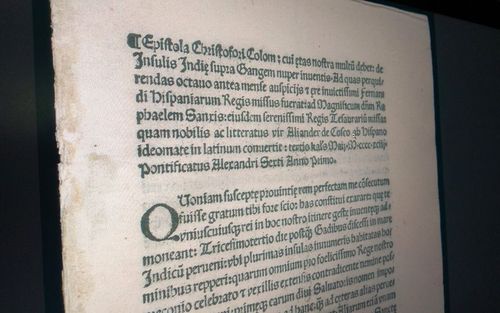 ¶ Epistola Christofori Colom: cui ętas nostra multũ debet: de
Insulis Indię supra Gangem nuper inuentis. Ad quas perqui-
rendas octauo antea mense auspicijs ⁊ ęre inuictissimi Fernan-
di Hispaniarum Regis missus fuerat: ad Magnificum dñm Ra-
phaelem Sanxis: eiusdem serenissimi Regis Tesaurariũ missa:
quam nobilis ac litteratus vir Aliander de Cosco ab Hispano
ideomate in latinum conuertit: tertio kals Maij. M.cccc.xciij.
Pontificatus Alexandri Sexti Anno Primo.
QUoniam susceptę prouintię rem perfectam me cõsecutum
fuisse gratum tibi fore scio: has constitui exarare: quę te
vniuscuiusqꝫ rei in hoc nostro itinere gestę inuentęqꝫ ad-
moneant: Tricesimotertio die postqꝫ Gadibus discessi in mare
Indicũ perueni: vbi plurimas insulas innumeris habitatas ho-
minibus repperi: quarum omnium pro foelicissimo Rege nostro
pręconio celebrato ⁊ vexillis extensis contradicente nemine pos-
primęqꝫ earum diui Saluatoris nomen impo
ad cęteras alias